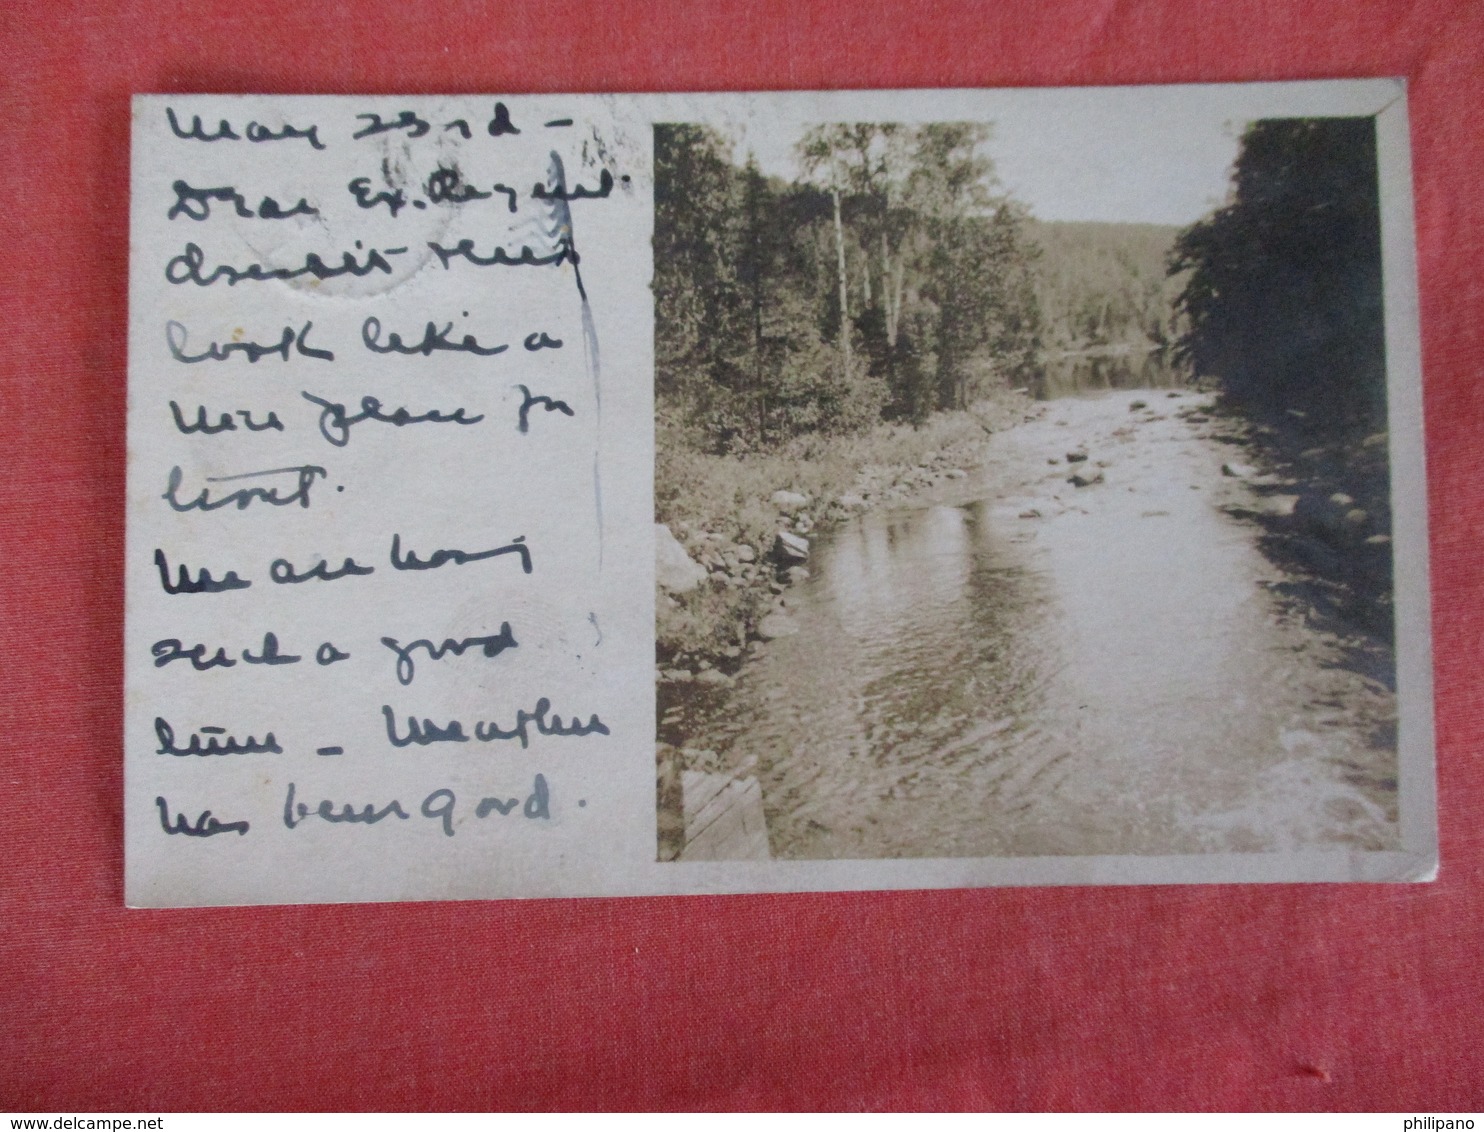 May 23rd -
Dear Ex. Regent.
doesn't this
look like a
nice place for
trout.
We are having
such a good
time - Weather
has been good.
philipano
www.delcampe.net